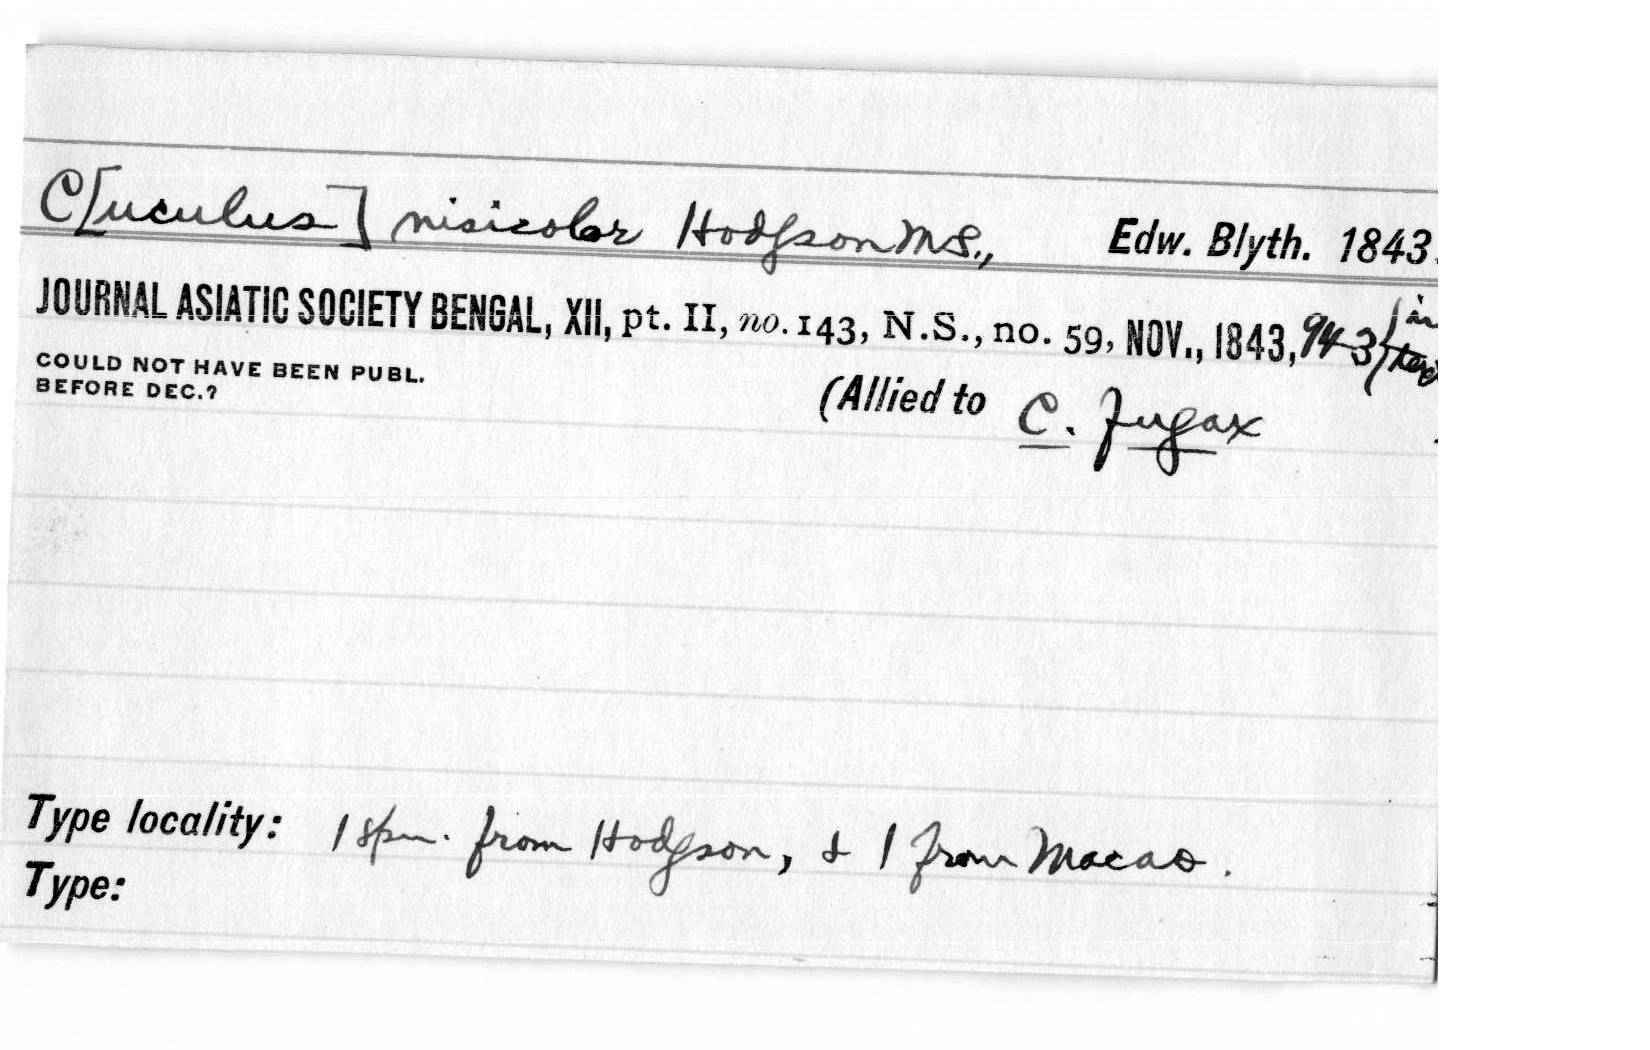 C[uculus] nisicolor Hodgson MS., Edw. Blyth. 1843.
JOURNAL ASIATIC SOCIETY BENGAL, XII, pt. II, no. 143, N.S., no. 59, NOV., 1843, 943 { in
text
COULD NOT HAVE BEEN PUBL.
BEFORE DEC.?
(Allied to C. fugax
Type locality: 1 spm. from Hodgson, & 1 from Macao.
Type: